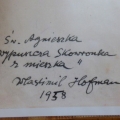 Św. Agnieszka
wypuszcza Skowronka
z mieszka "
Wlastimil Hofman
1958